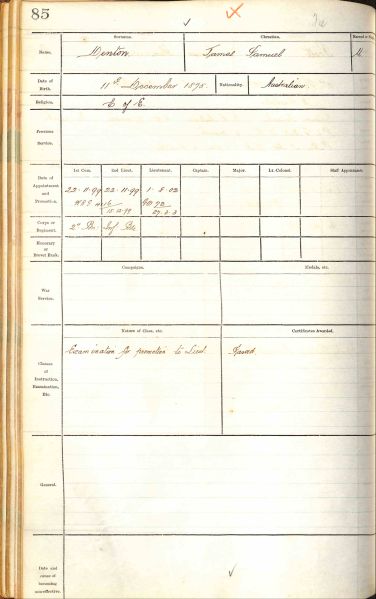 85
Surname.
Christian.
Married or Single
Name.
Denton
James Samuel
M
Date of Birth.
11th December 1875
Nationality.
Australian
Religion.
C of E
Previous Service.
Date of Appointment and Promotion.
1st Com.
2nd Lieut.
Lieutenant.
Captain.
Major.
Lt.-Colonel.
Staff Appointment.
22.11.99
22.11.99
1.8.02
15.12.99
27.2.3
Corps or Regiment.
2nd Bn. Inf Bde
Honorary or Brevet Rank.
Campaigns.
Medals, etc.
War Service.
Nature of Class, etc.
Certificates Awarded.
Classes of Instruction, Examination, Etc.
Examination for promotion to Lieut.
Passed
General.
Date and cause of becoming non-effective.